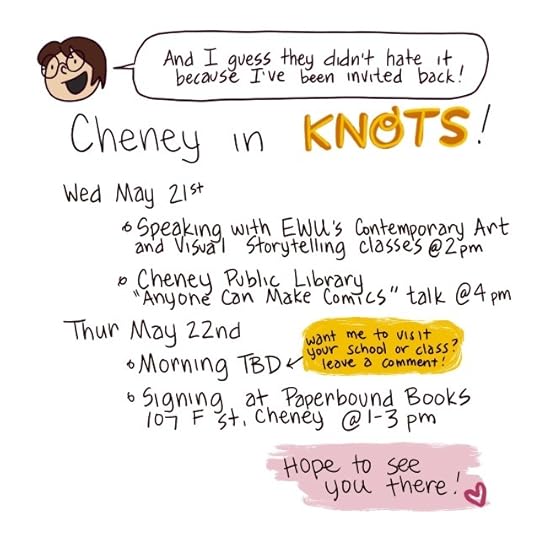 And I guess they didn't hate it
because I've been invited back!
Cheney in KNOTS!
Wed May 21st
Speaking with EWU's Contemporary Art
and Visual Storytelling classes @2pm
Cheney Public Library
"Anyone Can Make Comics" talk @4pm
Thur May 22nd
Morning TBD
want me to visit
your school or class?
leave a comment!
Signing at Paperbound Books
107 F St, Cheney @1-3 pm
Hope to see
you there!